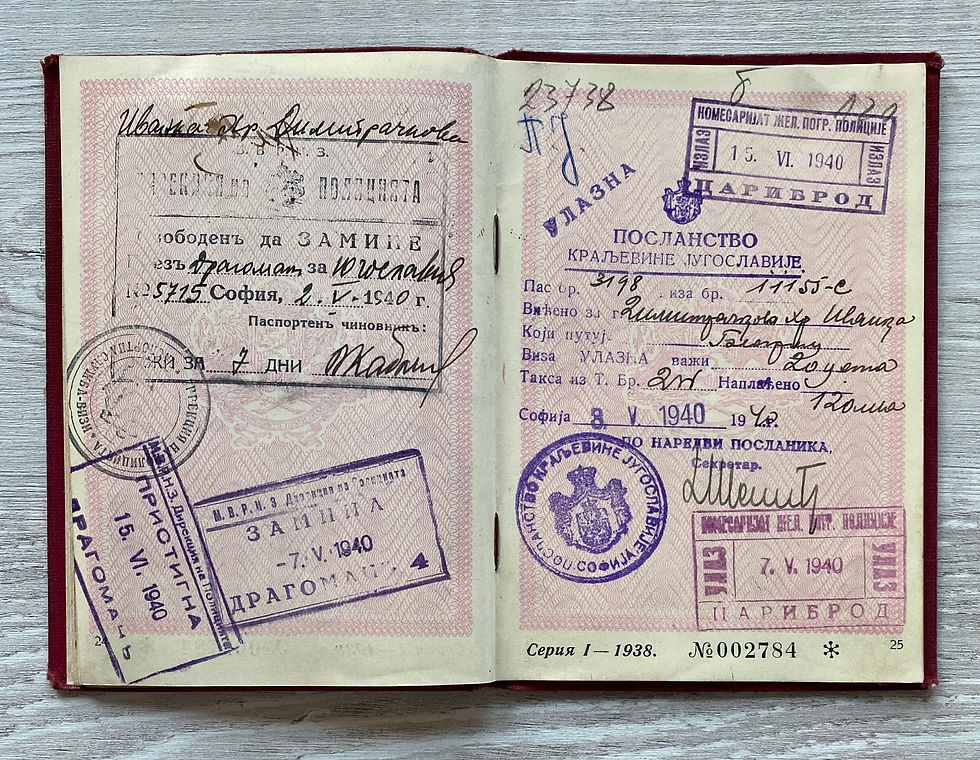 Иванка Хр. Димитрачкова
М.В.Р.Н.З.
ПОЛИЦИЯТА
Свободенъ да ЗАМИНЕ
презъ Драгоман за Югославия
№ 5715 София, 2. V. 1940 г.
Паспортенъ чиновникъ:
ЗА 7 ДНИ
М.В.Р.Н.З. Дирекция на Полицията
ЗАМИНА
-7. V. 1940
ДРАГОМАНЪ 4
М.В.Р.Н.З. Дирекция на Полицията
ПРИСТИГНА
15. VI. 1940
ДРАГОМАНЪ
23738
УЛАЗНА
КОМЕСАРИЈАТ ЖЕЛ. ПОГР. ПОЛИЦИЈЕ
ИЗЛАЗ 15. VI. 1940 ИЗЛАЗ
ЦАРИБРОД
ПОСЛАНСТВО
КРАЉЕВИНЕ ЈУГОСЛАВИЈЕ
Пас бр. 3198 Виза бр. 11155-с
Виђено за г. Димитрачкова Хр Иванка
Који путују
Виза УЛАЗНА важи
Такса из Т. Бр. Наплаћено
120
Софија 3. V. 1940 19
ПО НАРЕДБИ ПОСЛАНИКА,
Секретар.
ПОСЛАНСТВО КРАЉЕВИНЕ ЈУГОСЛАВИЈЕ
СОФИЈА
КОМЕСАРИЈАТ ЖЕЛ. ПОГР. ПОЛИЦИЈЕ
УЛАЗ 7. V. 1940 УЛАЗ
ЦАРИБРОД
Серия I — 1938. № 002784 *
25